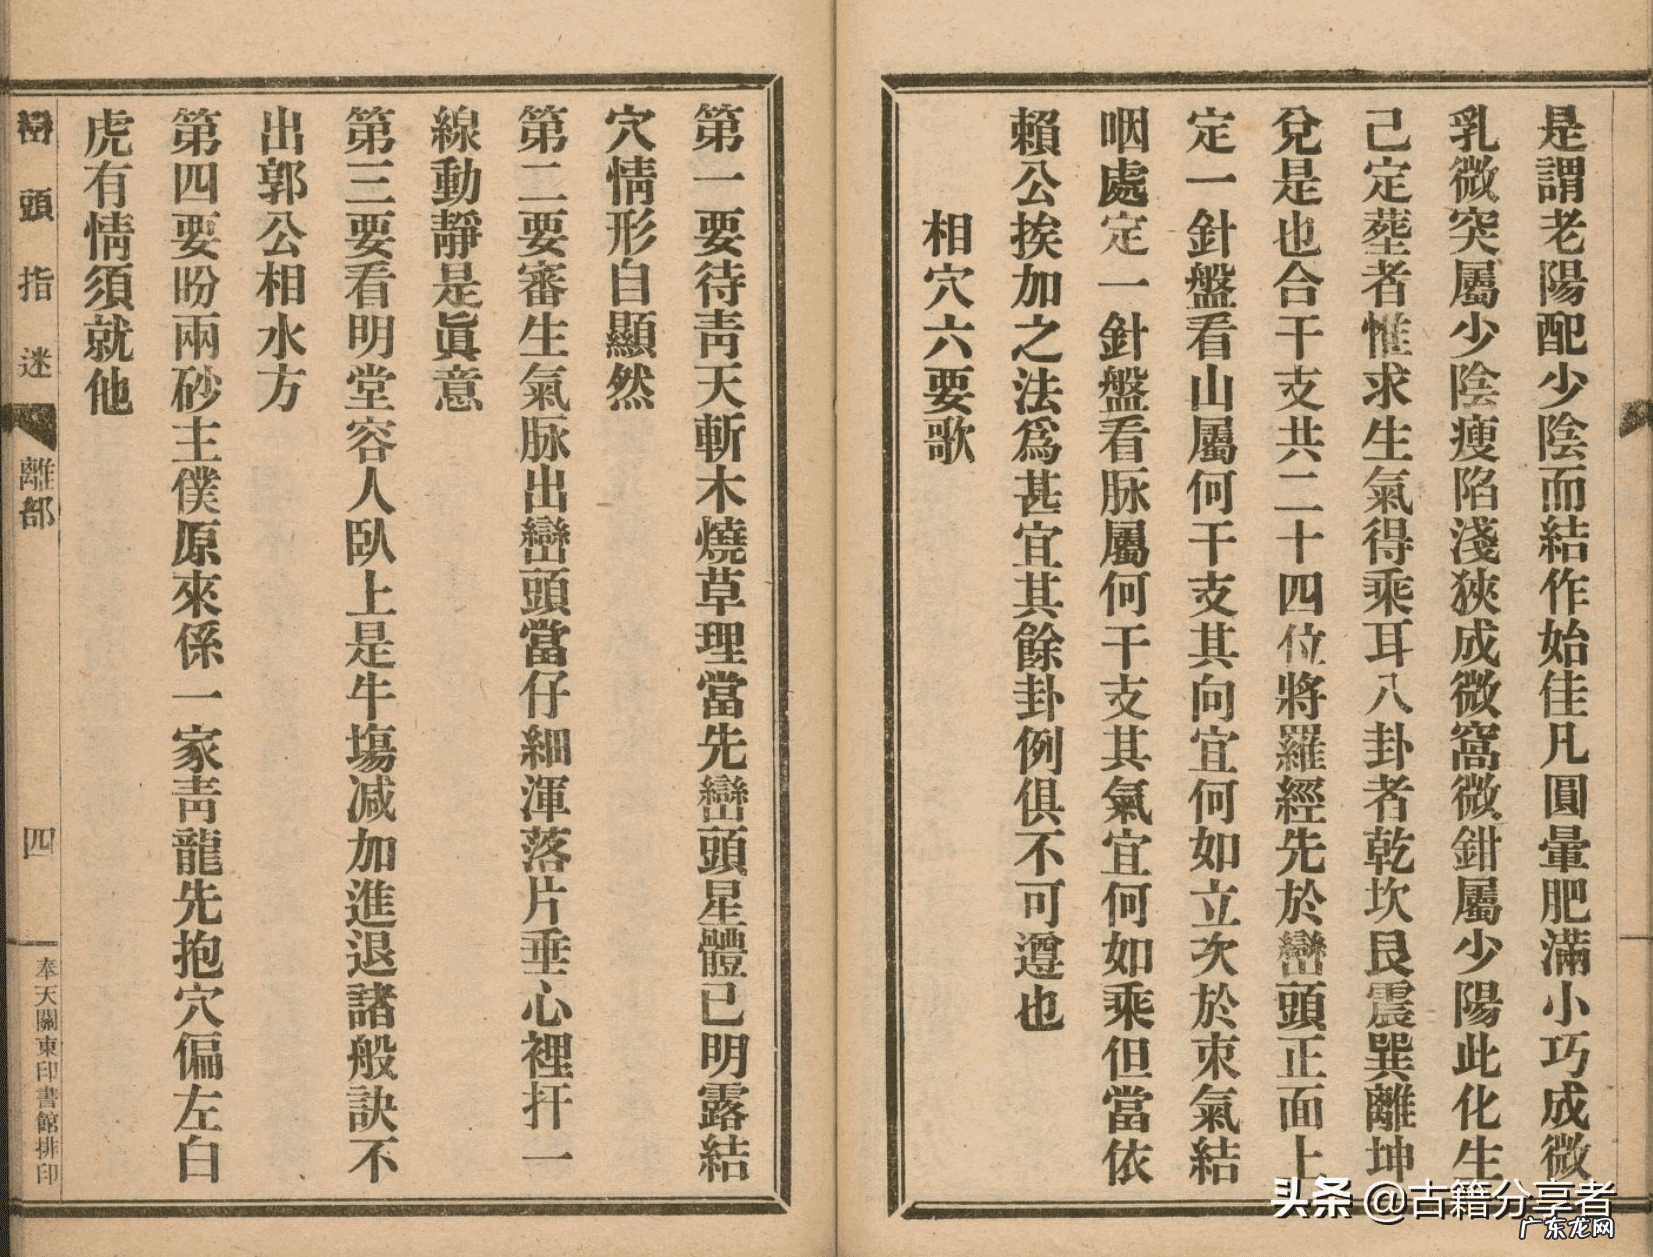 是謂老陽配少陰而結作始佳凡圓暈肥滿小巧成微
乳微突屬少陰瘦陷淺狹成微窩微鉗屬少陽此化生
己定葬者惟求生氣得乘耳八卦者乾坎艮震巽離坤
兌是也合干支共二十四位將羅經先於巒頭正面上
定一針盤看山屬何干支其向宜何如立次於束氣結
咽處定一針盤看脉屬何干支其氣宜何如乘但當依
賴公挨加之法爲甚宜其餘卦例俱不可遵也
相穴六要歌
第一要待靑天斬木燒草理當先巒頭星體已明露結
穴情形自顯然
第二要審生氣脉出巒頭當仔細渾落片垂心裡扞一
線動靜是眞意
第三要看明堂容人臥上是牛塲减加進退諸般訣不
出郭公相水方
第四要盼兩砂主僕原來係一家靑龍先抱穴偏左白
虎有情須就他
頭指迷
離部
四
奉天關東印書館排印
头条 @古籍分享者
广东龙网